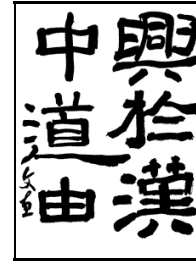 興於漢
中道由
文